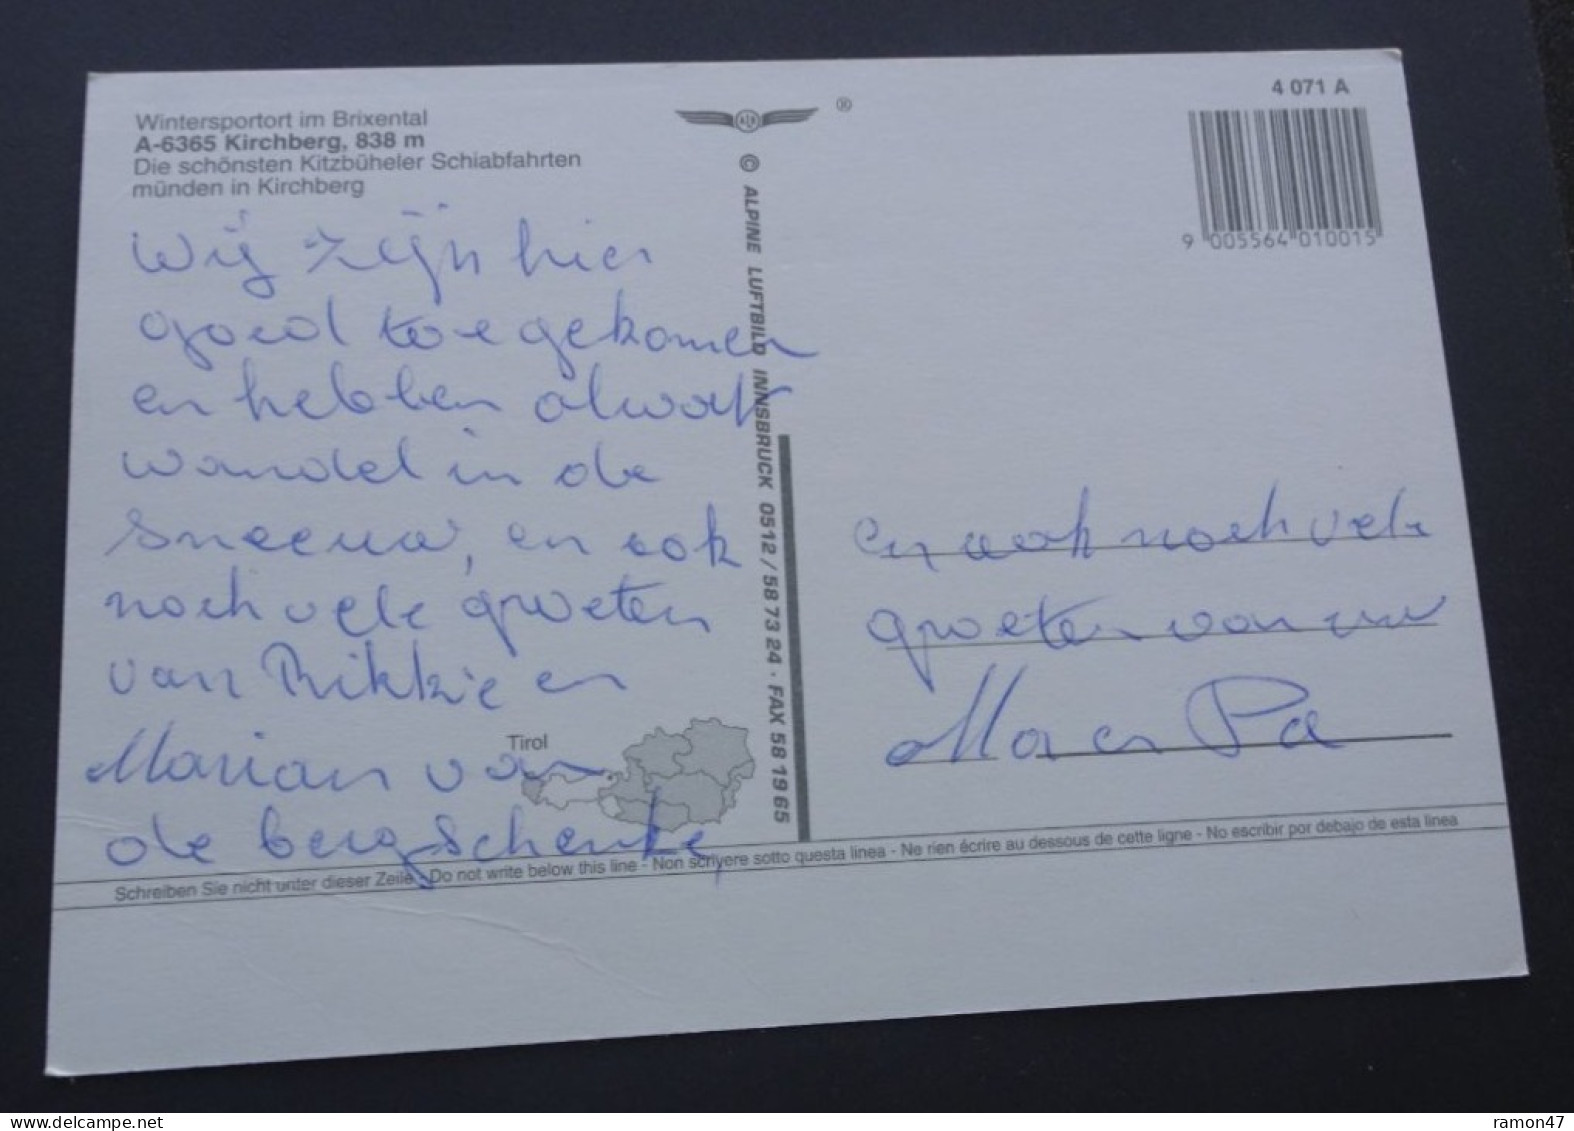 Wintersportort im Brixental
A-6365 Kirchberg, 838 m
Die schönsten Kitzbüheler Schiabfahrten
münden in Kirchberg
Wij zijn hier
goed toegekomen
en hebben al wat
wandel in de
sneeuw, en ook
noch vele groeten
van Rikkie en
Marian van
de bergschenke,
Tirol
®
© ALPINE LUFTBILD INNSBRUCK 0512 / 58 73 24 · FAX 58 19 65
4 071 A
9 005564 010015
en ook noch vele
groeten van uw
Ma en Pa
Schreiben Sie nicht unter dieser Zeile - Do not write below this line - Non scrivere sotto questa linea - Ne rien écrire au dessous de cette ligne - No escribir por debajo de esta linea
delcampe.net
ramon47